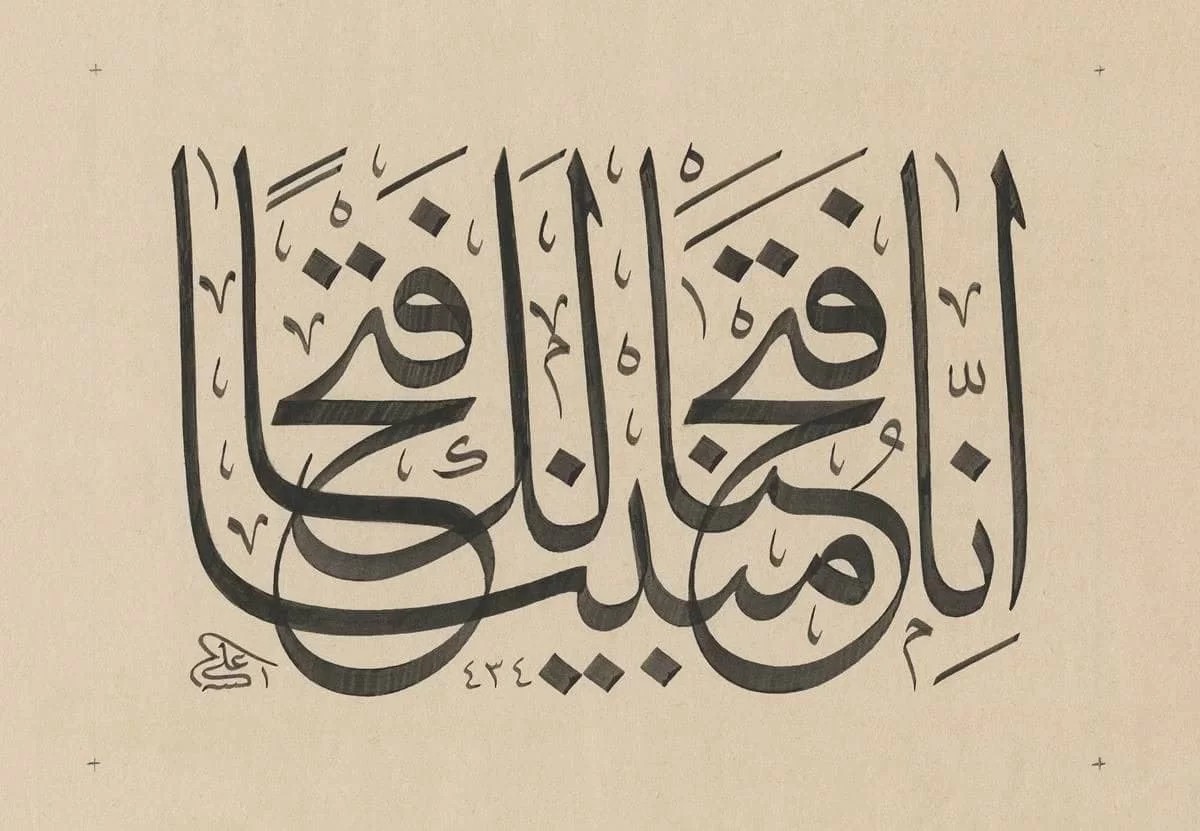 اِنَّا فَتَحْنَا لَكَ فَتْحًا مُبِينًا
٤٣٤